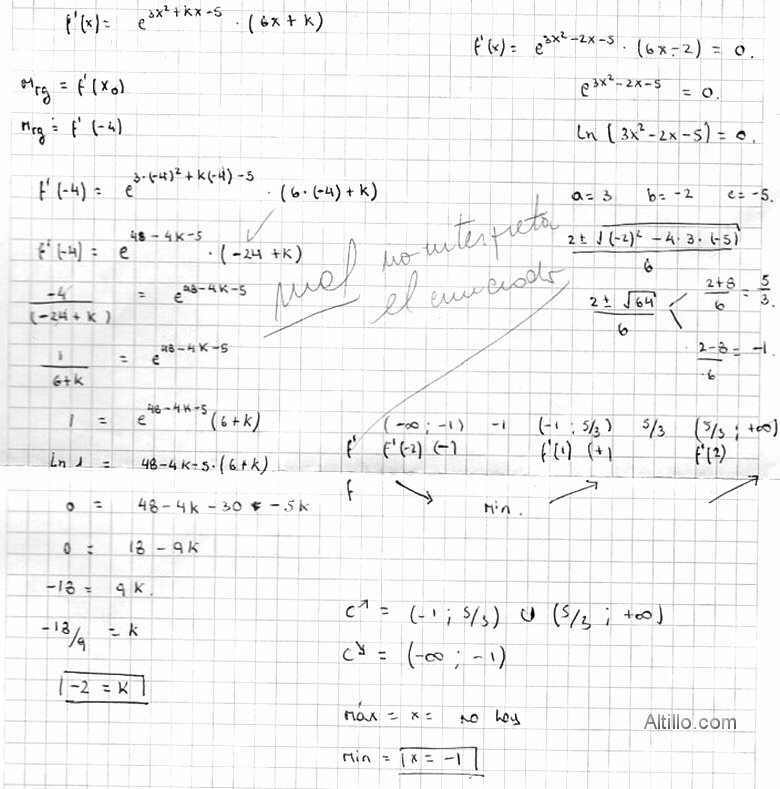 f'(x) = e^{3x²+kx-5} · (6x+k)
m_{rg} = f'(x₀)
m_{rg} = f'(-4)
f'(-4) = e^{3·(-4)²+k(-4)-5} · (6·(-4)+k)
f'(-4) = e^{48-4k-5} · (-24+k)
-4/(-24+k) = e^{48-4k-5}
1/(6+k) = e^{48-4k-5}
1 = e^{48-4k-5} (6+k)
ln 1 = 48-4k-5·(6+k)
0 = 48-4k-30 -5k
0 = 18-9k
-18 = 9k.
-18/9 = k
-2 = k
mal no interpreta
el enunciado
f'(x) = e^{3x²-2x-5} · (6x-2) = 0.
e^{3x²-2x-5} = 0.
ln (3x²-2x-5) = 0.
a = 3 b = -2 c = -5.
2 ± √((-2)² - 4·3·(-5)) / 6
2 ± √64 / 6
2+8/6 = 5/3.
2-8/6 = -1.
(-∞; -1) -1 (-1; 5/3) 5/3 (5/3; +∞)
f' f'(-2) (-) f'(1) (+) f'(2)
f ↘ min. ↗ ↗
C↗ = (-1; 5/3) ∪ (5/3; +∞)
C↘ = (-∞; -1)
máx = x = no hay
min = x = -1
Altillo.com